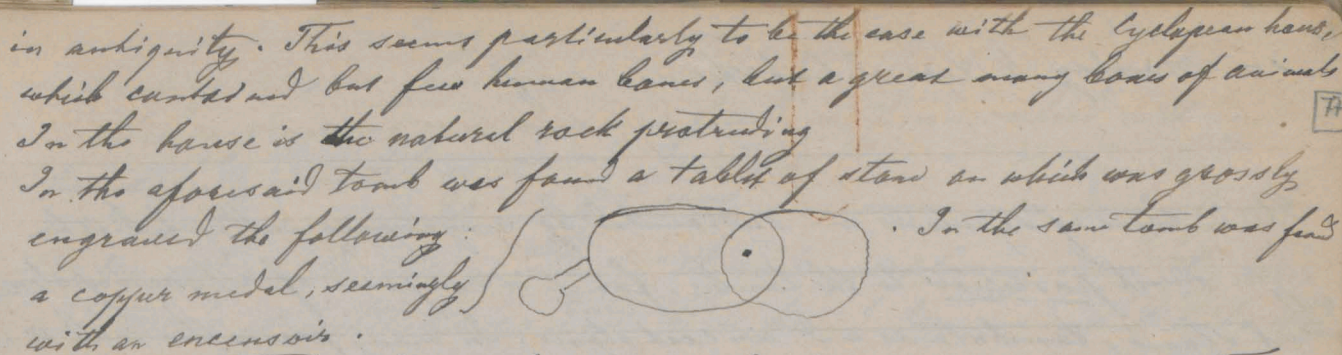 in antiquity. This seems particularly to be the case with the Cyclopean house,
which contained but few human bones, but a great many bones of animals
In the house is the natural rock protruding
In the aforesaid tomb was found a tablet of stone on which was grossly
engraved the following: . In the same tomb was found
a copper medal, seemingly
with an encensoir.